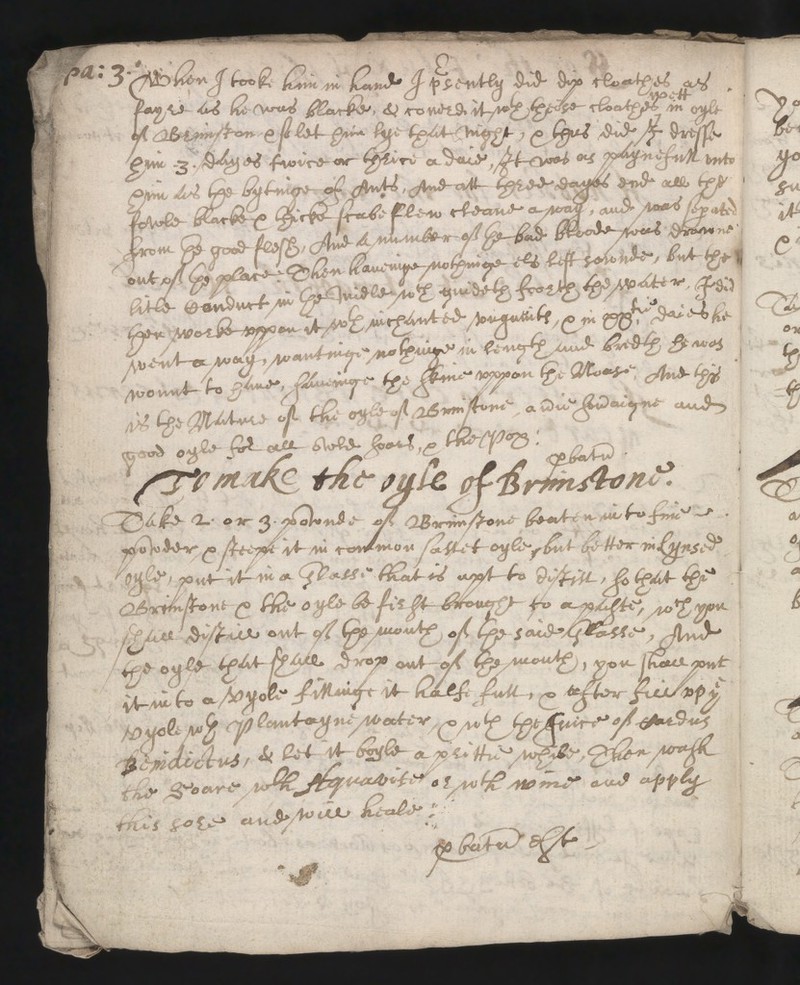 pa: 3.
When I tooke him in hand I psently did dip cloathes as
fayre as he was blacke, & couered it wth these cloathes wett in oyle
of Brimston & so let him lye that night, & thus did I dresse
him .3. dayes twice or thrice a daie, It was as paynefull vnto
him as the bytinge of Ants, And att three dayes end all the
fowle blacke & thicke scabe flew cleane a way, and was sepated
from the good flesh, And a number of the bad bloode was drawne
out of the place. Then haueinge nothinge els left sounde, but the
litle Conduct in the midle wth guideth foorth the water, I did
then worke vppon it wth inchanted vnguents, & in daies he
went a way, wantinge nothinge in length and bredth he was
wount to haue, saueinge the skine vppon the Noase, And this
is the Nature of the oyle of Brimstone, and
good oyle for all owld soars, & the Pox:
pbatu
To make the oyle of Brimstone.
Take 2. or 3. pownde of Brimstone beaten into fine
powder, & steepe it in common sallet oyle, but better in Lynsed
oyle, put it in a Glasse that is apt to distill, so that the
Brimstone & the oyle be first brought to a paste, wch you
shall distill out of the mouth of the said Glasse, And
the oyle that shall drop out of the mouth, you shall put
it into a vyole fillinge it halfe full, & after fill vp ye
vyole wth Plantayne water, & wth the Juice of Cardus
Benidictus, & let it boyle a prittie while, Then wash
the Soare wth Aquavite or wth wine and apply
this and will heale:
pbatu est